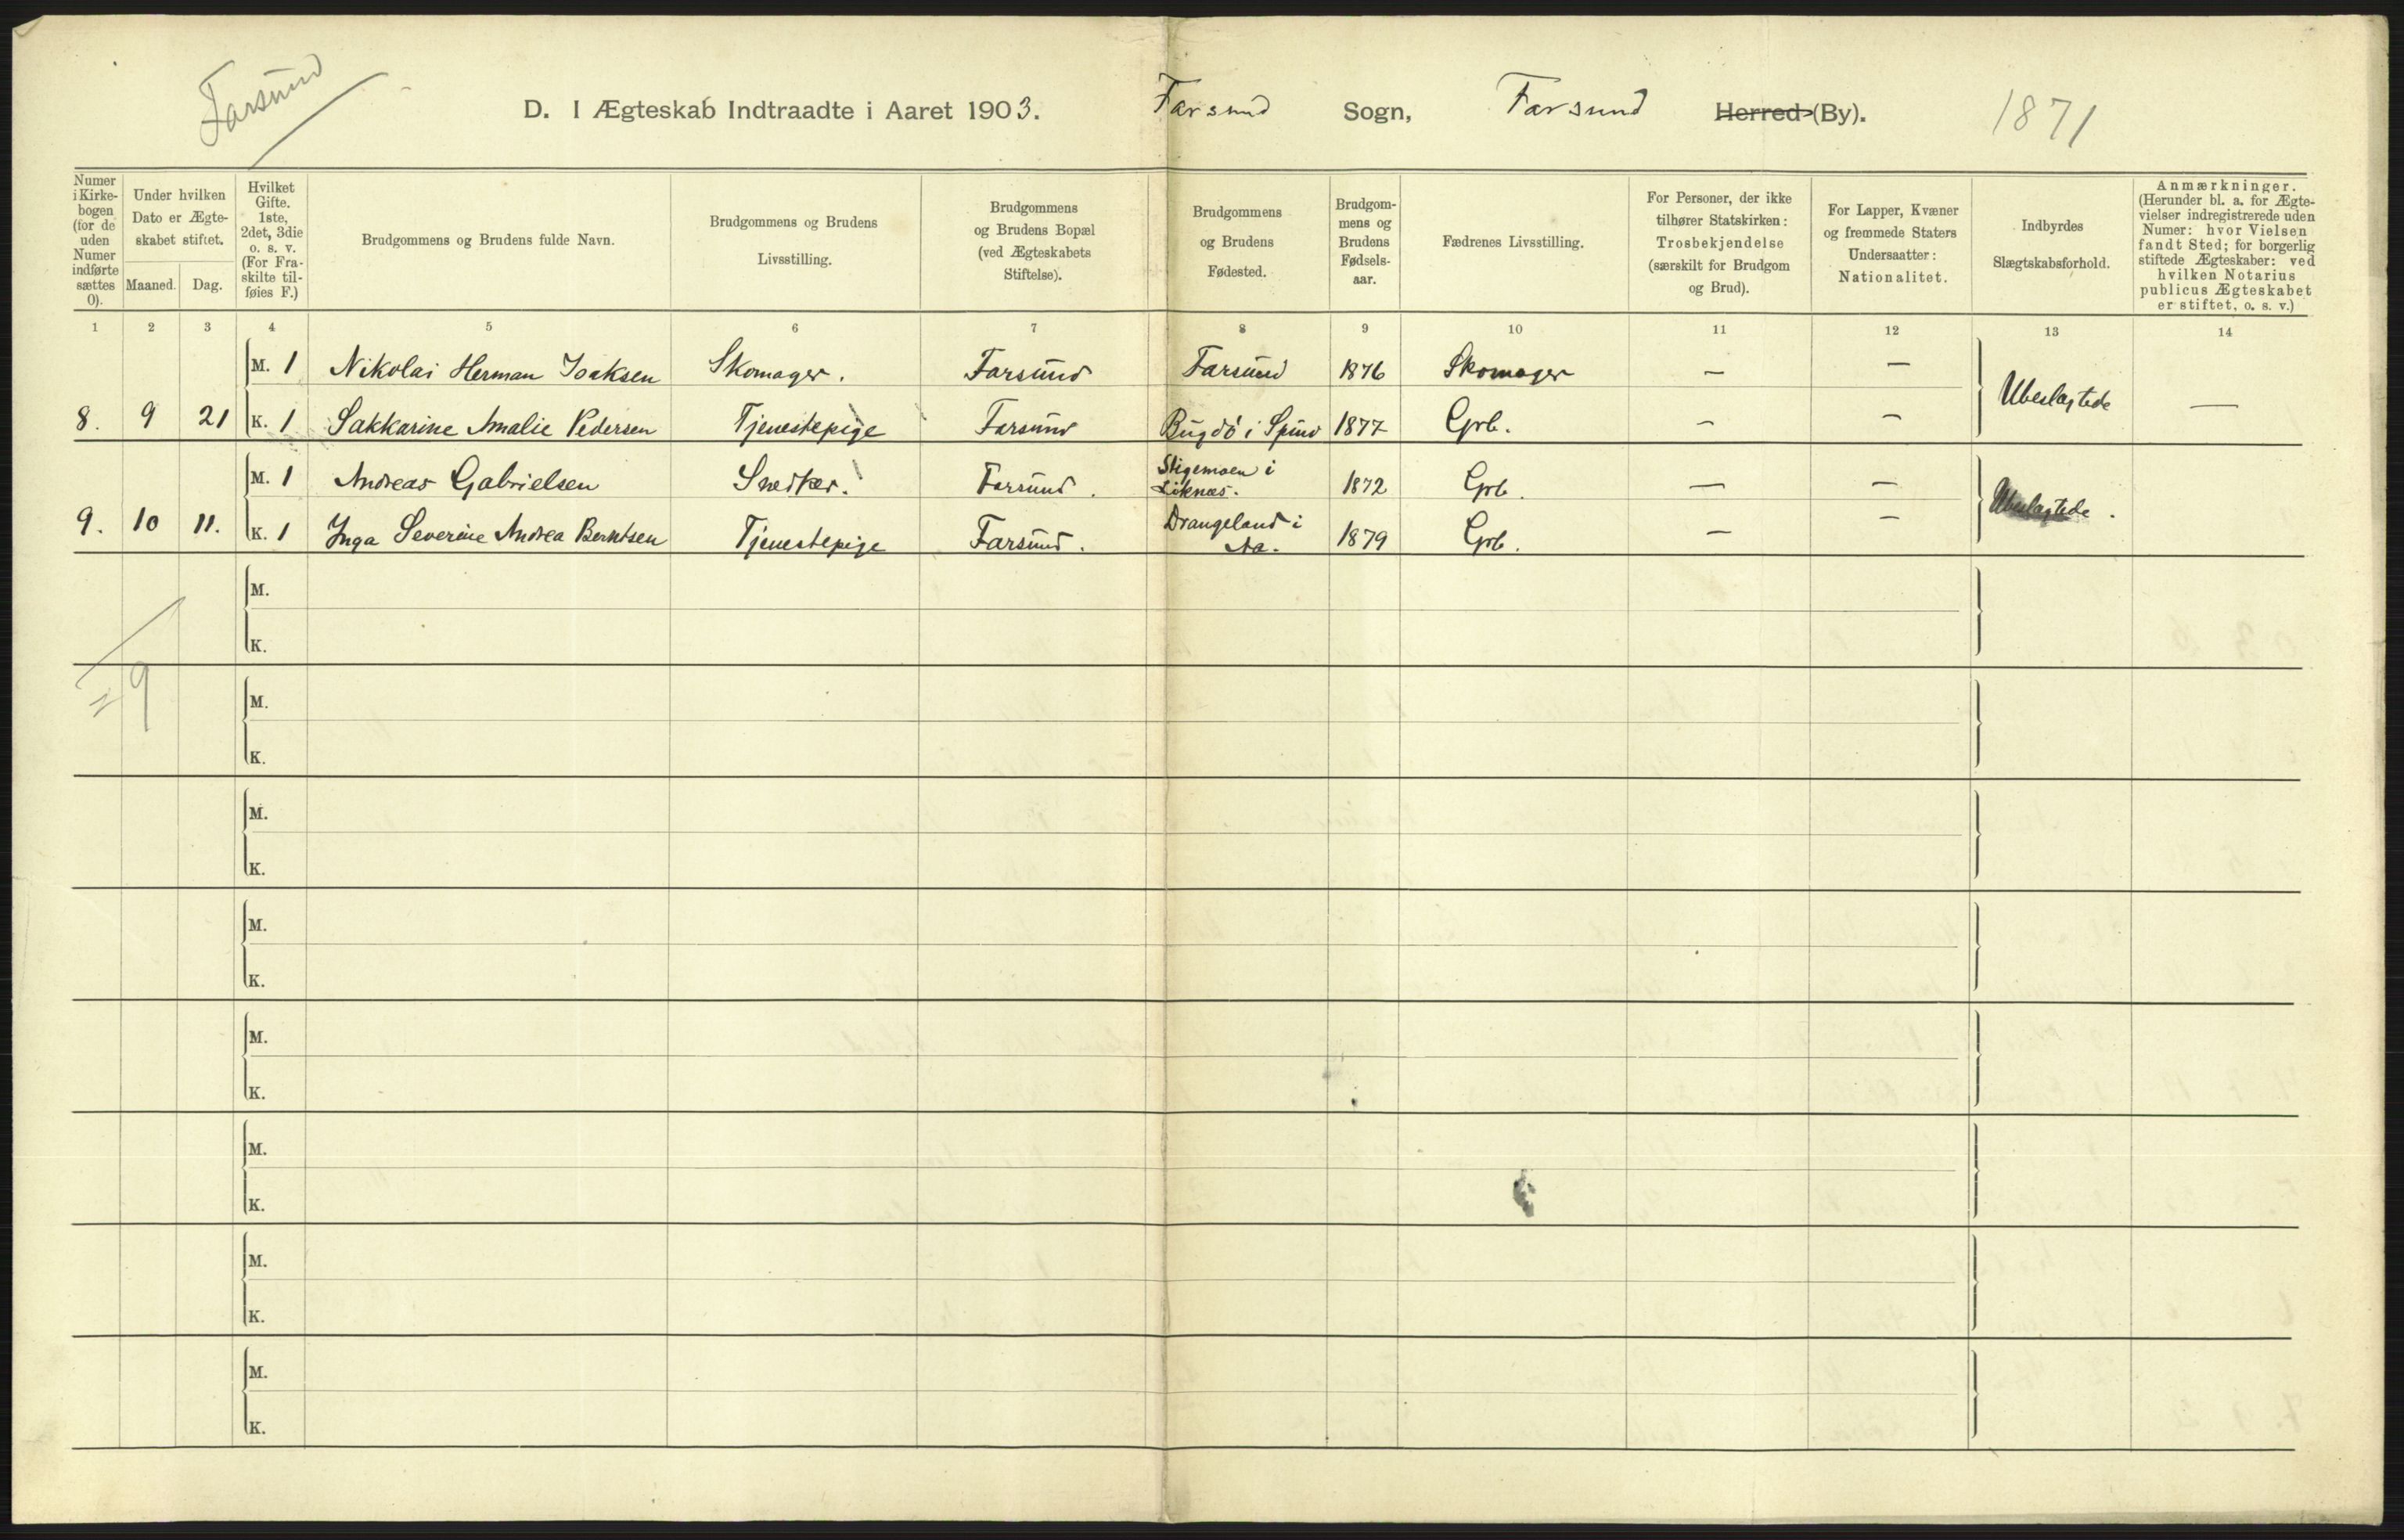 Farsund
D. I Ægteskab Indtraadte i Aaret 1903. Farsund Sogn, Farsund Herred (By). 1871
Numer i Kirke-bogen (for de uden Numer indførte sættes 0).
Under hvilken Dato er Ægte-skabet stiftet.
Maaned. Dag.
Hvilket Gifte. 1ste, 2det, 3die o. s. v. (For Fra-skilte til-føies F.)
Brudgommens og Brudens fulde Navn.
Brudgommens og Brudens Livsstilling.
Brudgommens og Brudens Bopæl (ved Ægteskabets Stiftelse).
Brudgommens og Brudens Fødested.
Brudgom-mens og Brudens Fødsels-aar.
Fædrenes Livsstilling.
For Personer, der ikke tilhører Statskirken: Trosbekjendelse (særskilt for Brudgom og Brud).
For Lapper, Kvæner og fremmede Staters Undersaatter: Nationalitet.
Indbyrdes Slægtskabsforhold.
Anmærkninger. (Herunder bl. a. for Ægte-vielser indregistrerede uden Numer: hvor Vielsen fandt Sted; for borgerlig stiftede Ægteskaber: ved hvilken Notarius publicus Ægteskabet er stiftet, o. s. v.)
1 2 3 4 5 6 7 8 9 10 11 12 13 14
M. 1 Nikolai Herman Isaksen Skomager. Farsund Farsund 1876 Skomager — — Ubeslægtede —
8. 9 21 K. 1 Sakkarine Amalie Pedersen Tjenestepige Farsund Bugdö i Spind 1877 Grb. — —
M. 1 Andreas Gabrielsen Snedker. Farsund. Stigemoen i Liknæs. 1872 Grb. — — Ubeslægtede.
9. 10 11. K. 1 Inga Severine Andrea Berntsen Tjenestepige Farsund. Drangeland i Aa. 1879 Grb. — —
M.
K.
= 9
M.
K.
M.
K.
M.
K.
M.
K.
M.
K.
M.
K.
M.
K.